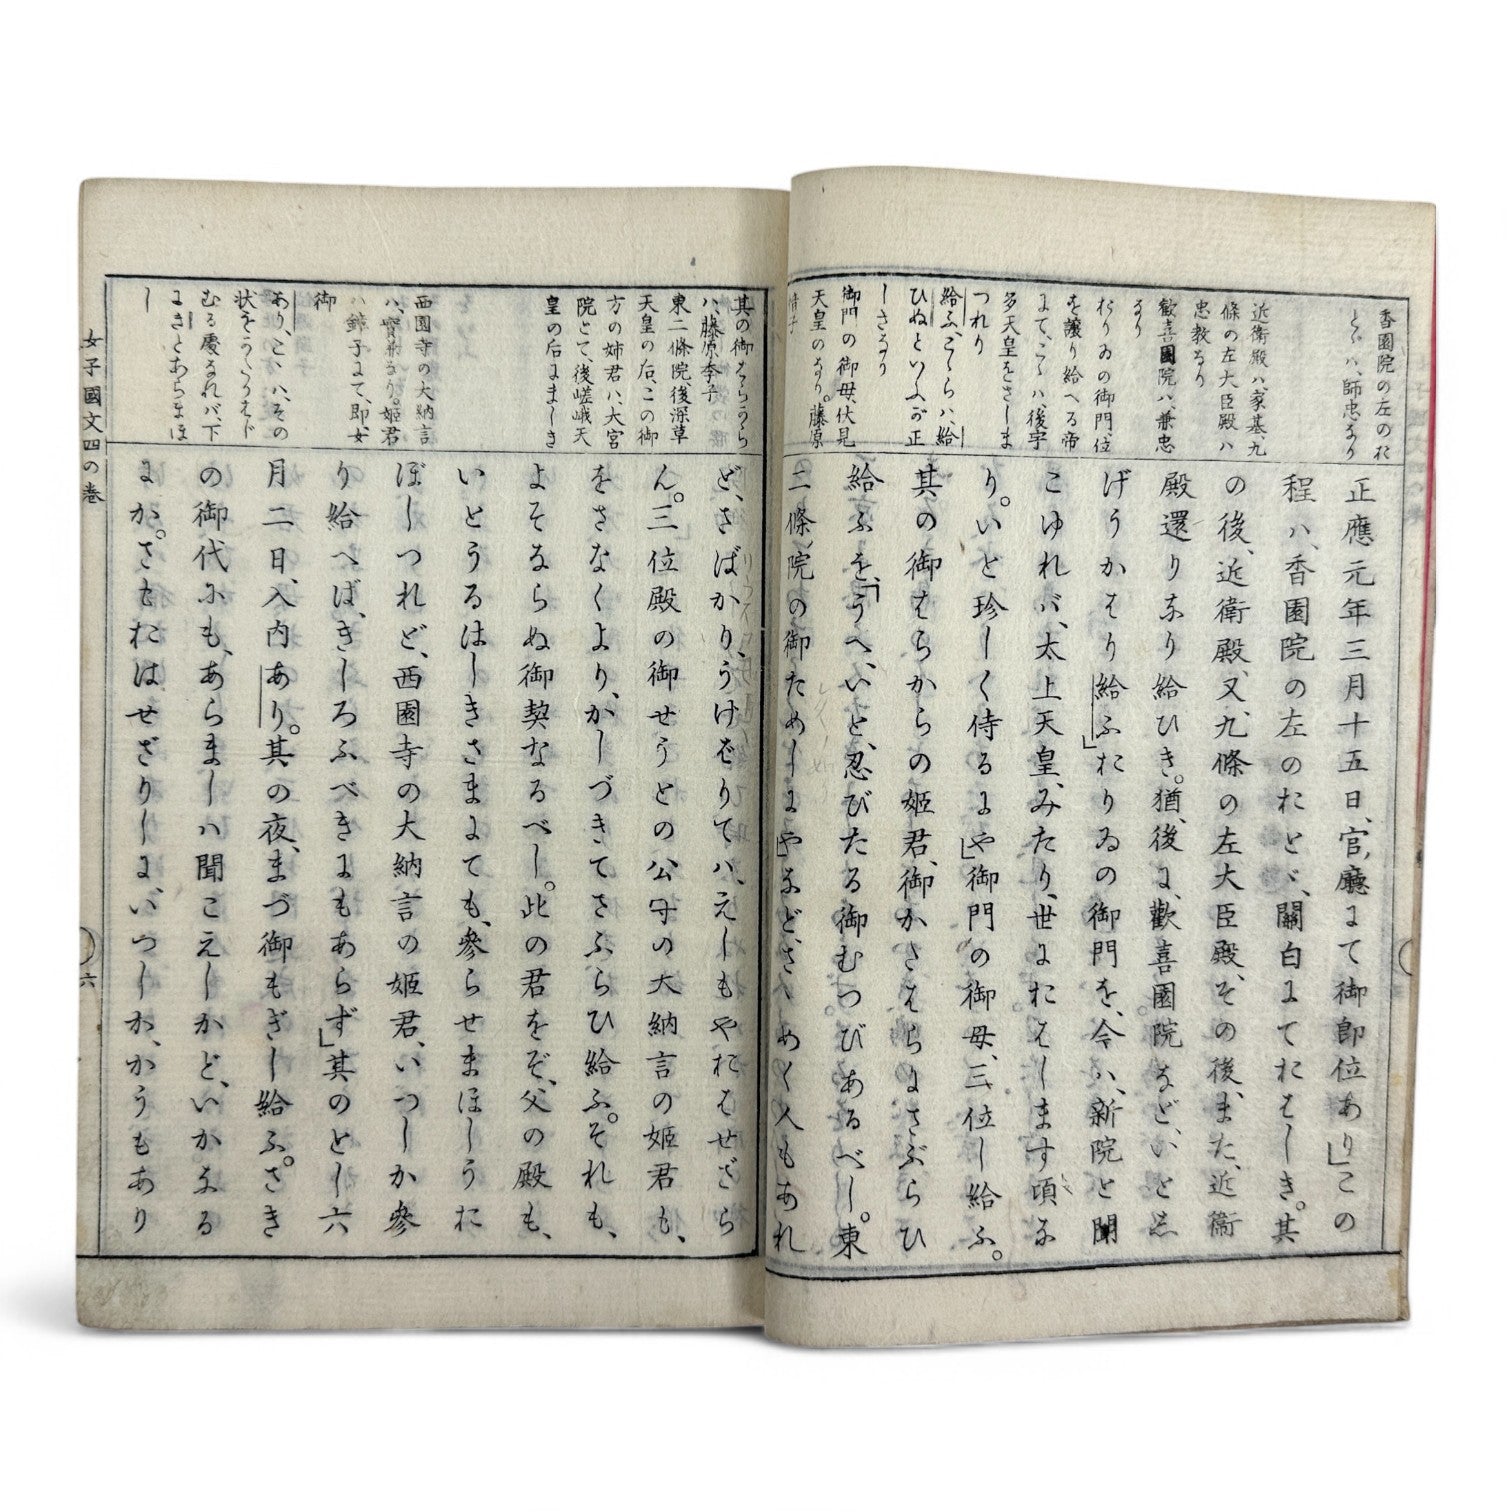 香園院の左のお
とゞハ、師忠なり
近衛殿ハ、家基、九
條の左大臣殿ハ
忠教なり
歓喜園院ハ、兼忠
なり
おりゐの御門、位
を讓り給へる帝
にて、こゝハ、後宇
多天皇をさしま
つれり
給ふ、こゝらハ、給
ひぬといふが正
しさなり
御門の御母、伏見
天皇のなり。藤原
正應元年三月十五日、官廳にて御即位あり」この
程ハ、香園院の左のおとゞ、關白にておはしき。其
の後、近衛殿、又、九條の左大臣殿、その後、また、近衛
殿還りなり給ひき。猶、後に、歡喜園院など、いとし
げうかはり給ふ」おりゐの御門を、今ハ、新院と聞
こゆれバ、太上天皇、みたり、世におはします頃な
り。いと珍しく侍るにや」御門の御母、三位し給ふ。
其の御はらからの姫君、御かさはらにさぶらひ
給ふを、「うへ、いと、忍びたる御むつびあるべし。東
二條院の御ためしにや」など、さゝめく人もあれ
其の御はらから
ハ、藤原季子
東二條院、後深草
天皇の后、この御
方の姉君ハ、大宮
院とて、後嵯峨天
皇の后にましき
西園寺の大納言
ハ、實兼なり。姫君
ハ鏱子にて、即、女
御
あり、こゝハ、その
状をうつゝうはドむる處なれバ、下
にきとあらまほ
し
ど、さばかり、うけばりてハ、えしもやおはせざら
ん。三位殿の御せうとの公守の大納言の姫君も、
をさなくより、かしづきてさふらひ給ふ。それも、
よそならぬ御契なるべし。此の君をぞ、父の殿も、
いとうるはしきさまにても、參らせまほしうお
ぼしつれど、西園寺の大納言の姫君、いつしか參
り給へば、きしろふべきにもあらず」其のとし六
月二日、入内あり。其の夜、まづ御もぎし給ふ。さき
の御代にも、あらましハ聞こえしかど、いかなる
にか。さもおはせざりしに、いつしか、かうもあり
女子國文四の卷
六